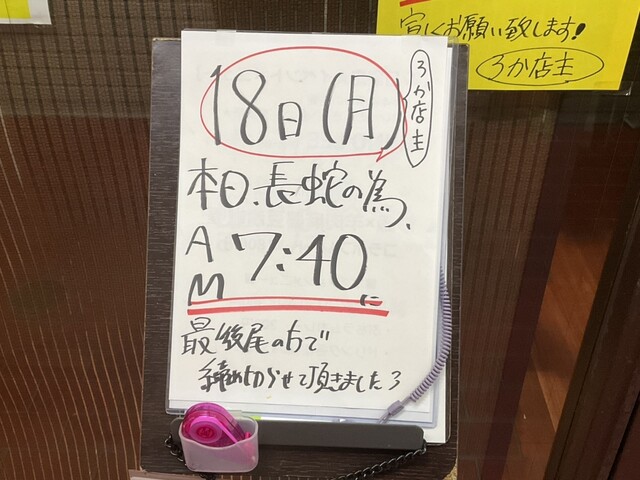 宜しくお願い致します!
ろか店主
18日(月)
ろか店主
本日、長蛇の為、
AM7:40に
最後尾の方で
締め切らせて頂きましたろ